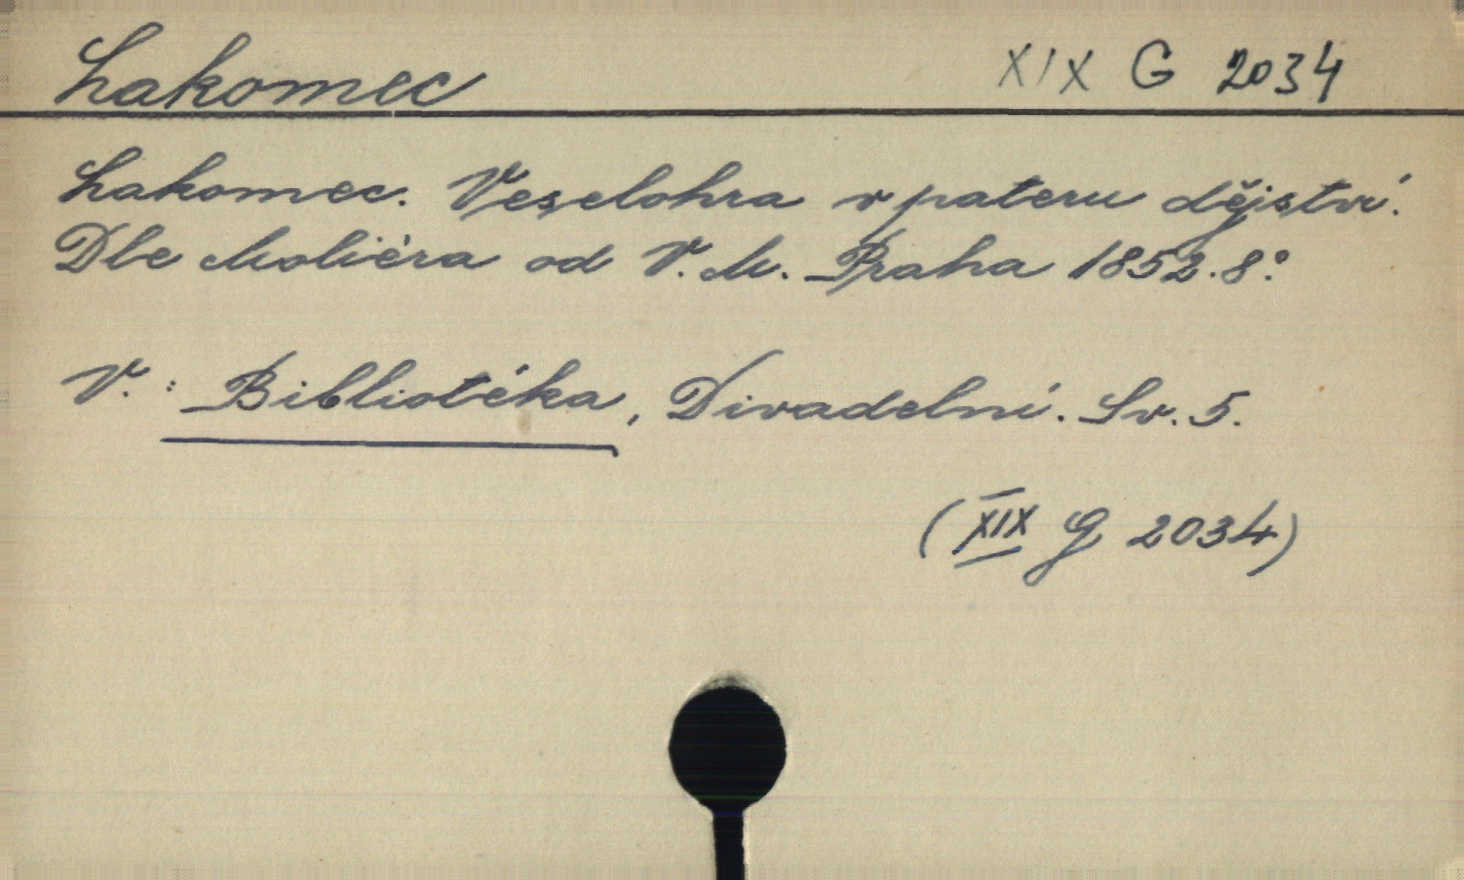 Lakomec XIX G 2034
Lakomec. Veselohra v pateru dějství.
Dle Moliéra od V. M. Praha 1852. 8°.
V.: Bibliotéka, Divadelní. Sv. 5.
(XIX G 2034)